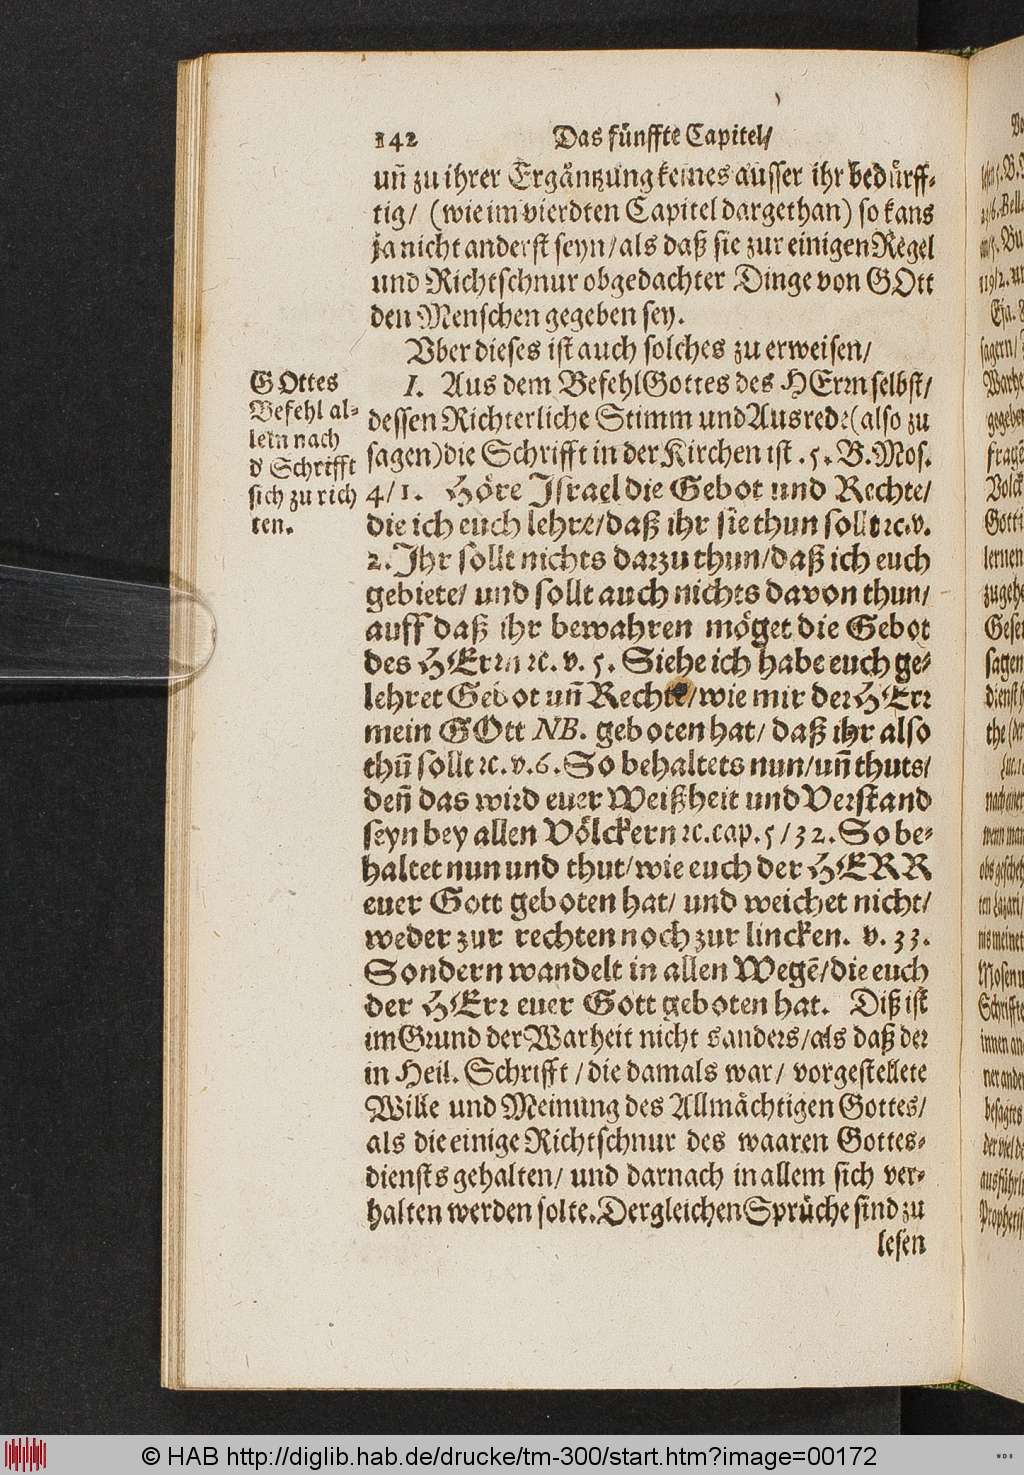 142 Das fünffte Capitel/
uñ zu ihrer Ergäntzung keines ausser ihr bedürff-
tig/ (wie im vierdten Capitel dargethan) so kans
ja nicht anderst seyn/ als daß sie zur einigen Regel
und Richtschnur obgedachter Dinge von GOtt
den Menschen gegeben sey.
Vber dieses ist auch solches zu erweisen/
GOttes
Befehl al-
lein nach
d' Schrifft
sich zu rich
ten.
I. Aus dem Befehl Gottes des HErrn selbst/
dessen Richterliche Stimm und Ausrede (also zu
sagen) die Schrifft in der Kirchen ist. 5. B. Mos.
4/1. Höre Israel die Gebot und Rechte/
die ich euch lehre/ daß ihr sie thun sollt ꝛc. v.
2. Ihr sollt nichts darzu thun/ daß ich euch
gebiete/ und sollt auch nichts davon thun/
auff daß ihr bewahren möget die Gebot
des HErrn ꝛc. v. 5. Siehe ich habe euch ge-
lehret Gebot uñ Rechte/ wie mir der HErr
mein GOtt NB. geboten hat/ daß ihr also
thũ sollt ꝛc. v. 6. So behaltets nun/ uñ thuts/
deñ das wird euer Weißheit und Verstand
seyn bey allen Völckern ꝛc. cap. 5/32. So be-
haltet nun und thut/ wie euch der HERR
euer Gott geboten hat/ und weichet nicht/
weder zur rechten noch zur lincken. v. 33.
Sondern wandelt in allen Wegẽ/ die euch
der HErr euer Gott geboten hat. Diß ist
im Grund der Warheit nichts anders/ als daß der
in Heil. Schrifft / die damals war/ vorgestellete
Wille und Meinung des Allmächtigen Gottes/
als die einige Richtschnur des waaren Gottes-
diensts gehalten/ und darnach in allem sich ver-
halten werden solte. Dergleichen Sprüche sind zu
lesen
© HAB http://diglib.hab.de/drucke/tm-300/start.htm?image=00172